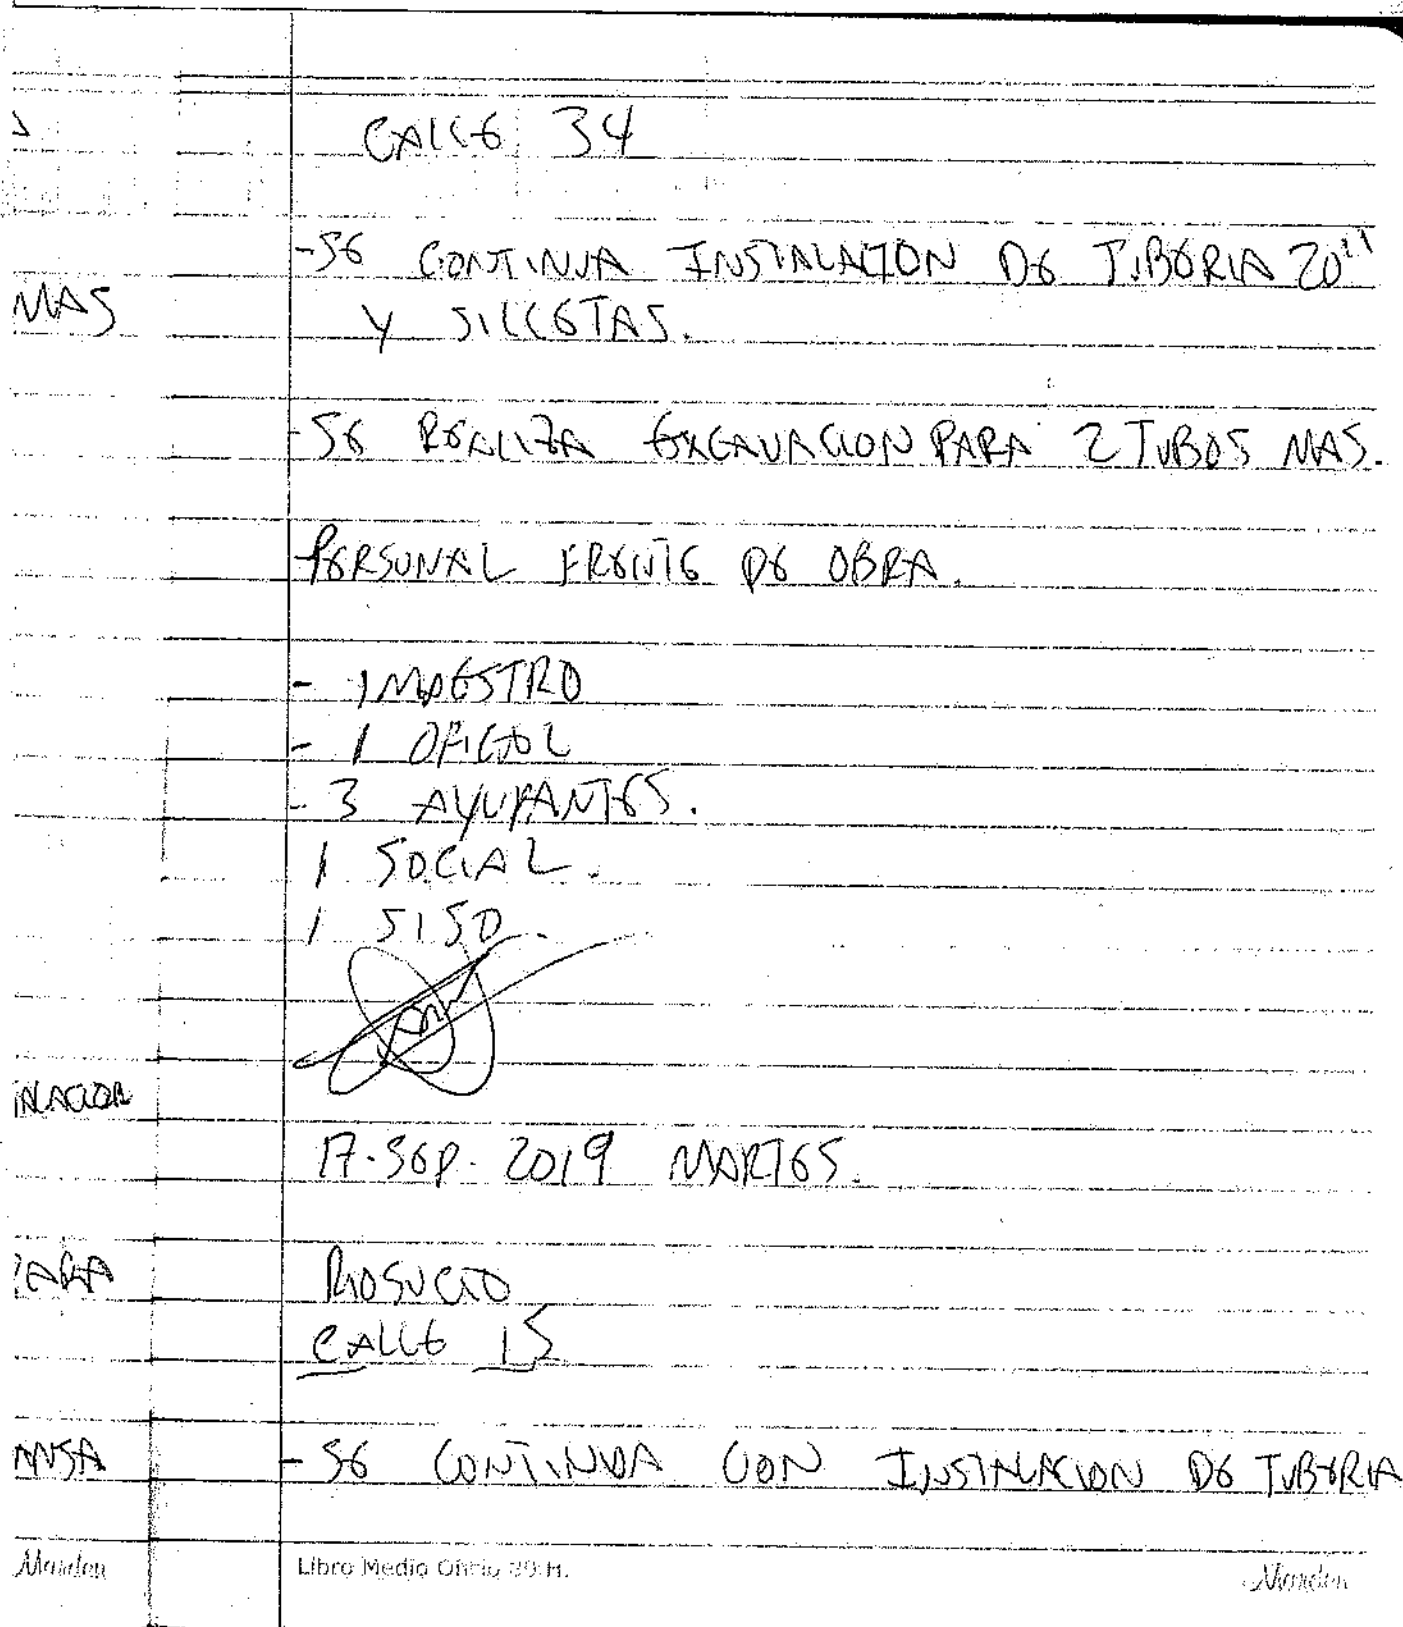 CALLE 34
-SE CONTINUA INSTALACION DE TUBERIA 20"
MAS
Y SILLETAS.
-SE REALIZA EXCAVACION PARA 2 TUBOS MAS.
PERSONAL FRENTE DE OBRA.
- 1 MAESTRO
- 1 OFICIAL
- 3 AYUDANTES.
1 SOCIAL.
1 SISO.
ALACION
17.SEP. 2019 MARTES.
PARA
RIOSUCIO
CALLE 15
ANSA
- SE CONTINUA CON INSTALACION DE TUBERIA
Marden
Libro Medio Oficio 80 H.
Marden